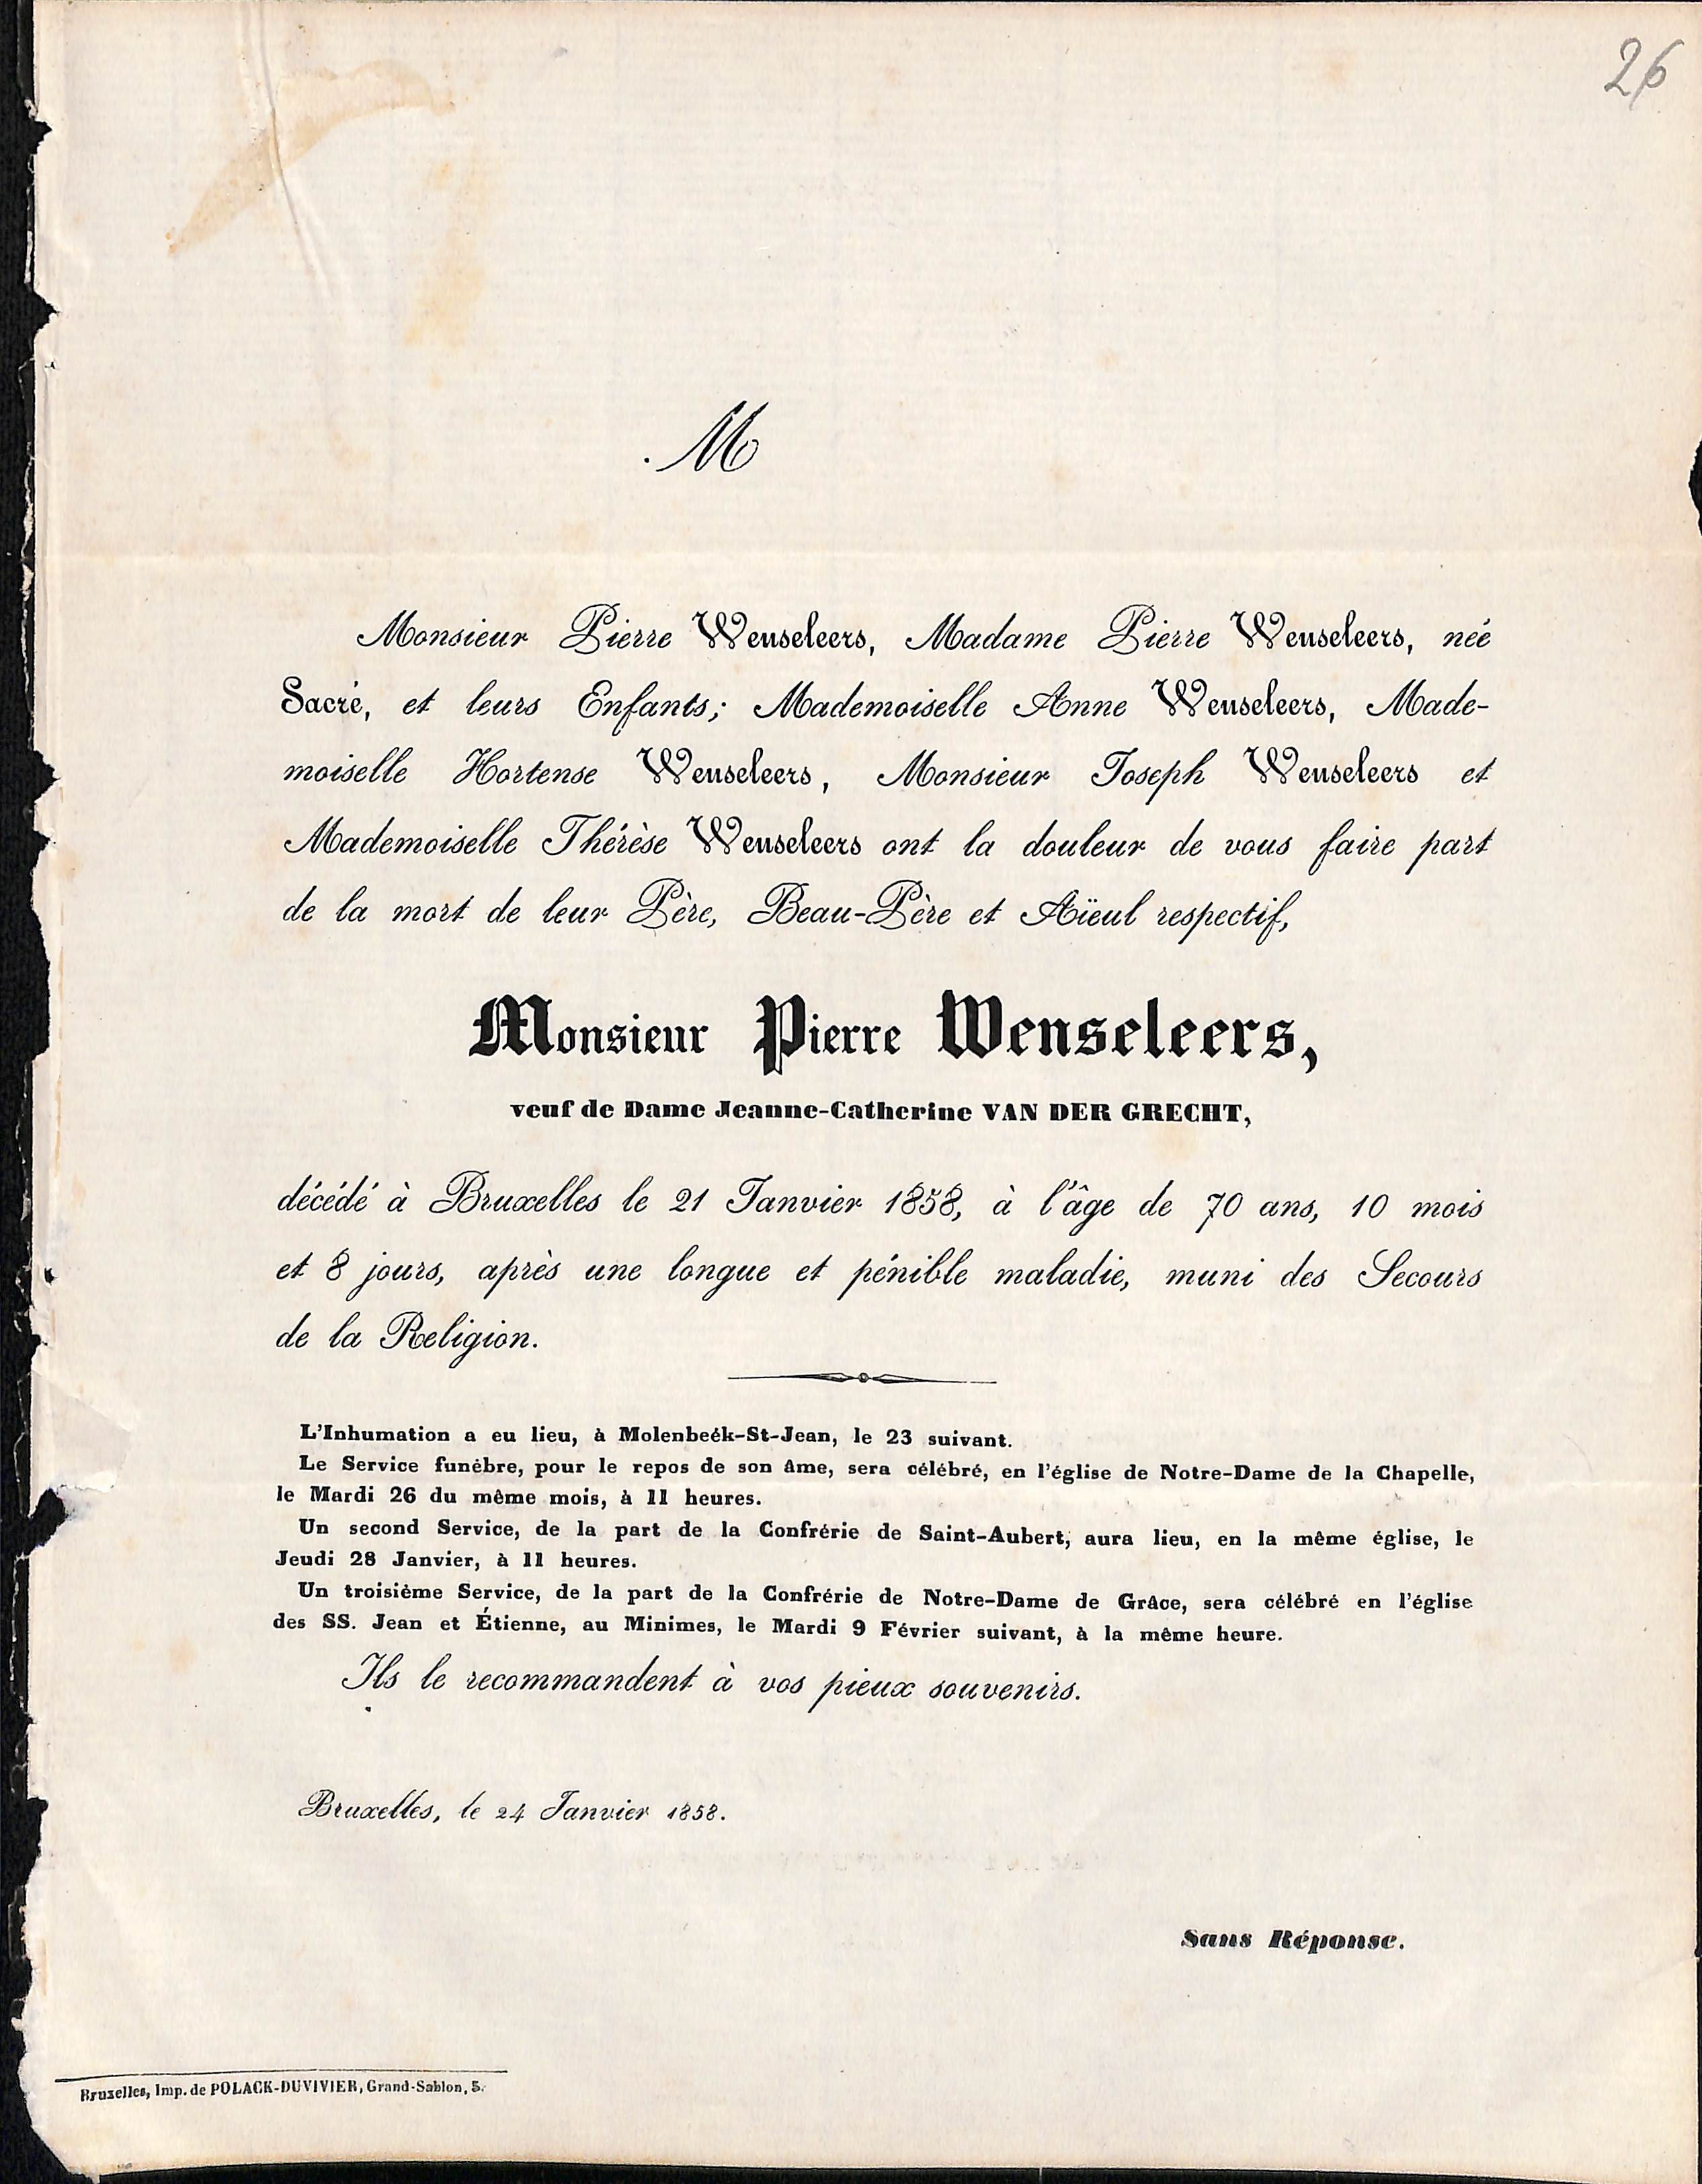 26
M
Monsieur Pierre Wenseleers, Madame Pierre Wenseleers, née
Sacré, et leurs Enfants; Mademoiselle Anne Wenseleers, Made-
moiselle Hortense Wenseleers, Monsieur Joseph Wenseleers et
Mademoiselle Thérèse Wenseleers ont la douleur de vous faire part
de la mort de leur Père, Beau-Père et Aïeul respectif,
Monsieur Pierre Wenseleers,
veuf de Dame Jeanne-Catherine VAN DER GRECHT,
décédé à Bruxelles le 21 Janvier 1858, à l'âge de 70 ans, 10 mois
et 8 jours, après une longue et pénible maladie, muni des Secours
de la Religion.
L'Inhumation a eu lieu, à Molenbeék-St-Jean, le 23 suivant.
Le Service funèbre, pour le repos de son âme, sera célébré, en l'église de Notre-Dame de la Chapelle,
le Mardi 26 du même mois, à 11 heures.
Un second Service, de la part de la Confrérie de Saint-Aubert, aura lieu, en la même église, le
Jeudi 28 Janvier, à 11 heures.
Un troisième Service, de la part de la Confrérie de Notre-Dame de Grâce, sera célébré en l'église
des SS. Jean et Étienne, au Minimes, le Mardi 9 Février suivant, à la même heure.
Ils le recommandent à vos pieux souvenirs.
Bruxelles, le 24 Janvier 1858.
Sans Réponse.
Bruxelles, Imp. de POLACK-DUVIVIER, Grand-Sablon, 5.